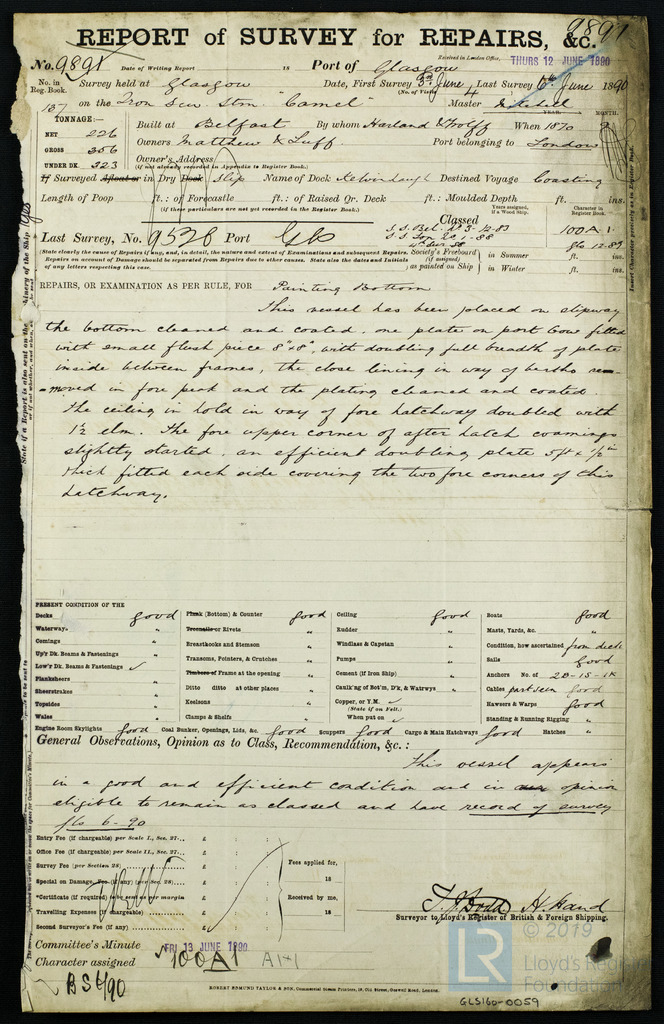 9891
REPORT of SURVEY for REPAIRS, &c.
Received in London Office, THURS 12 JUNE 1890
No. 9891 Date of Writing Report 18 Port of Glasgow
No. in Reg. Book. Survey held at Glasgow Date, First Survey 3rd June Last Survey 6th June 1890
(No. of Visits 4)
157 on the Iron Scw. Stm. "Camel" Master Mitchell
TONNAGE:— YEAR. MONTH.
NET 226 Built at Belfast By whom Harland & Wolff When 1870 9
GROSS 356 Owners Matthew & Luff Port belonging to London
UNDER DK. 323 Owner's Address
(if not already recorded in Appendix to Register Book.)
If Surveyed Afloat or in Dry Dock Slip Name of Dock Kelvinhaugh Destined Voyage Coasting
Length of Poop ft.: of Forecastle ft.: of Raised Qr. Deck ft.: Moulded Depth ft. ins.
(if these particulars are not yet recorded in the Register Book.)
Years assigned, if a Wood Ship. Character in Register Book.
Classed
S.S. Bel. No 3-12-83 100A 1.
Last Survey, No. 9538 Port Gls 12.89
(State clearly the cause of Repairs if any, and, in detail, the nature and extent of Examinations and subsequent Repairs.
Repairs on account of Damage should be separated from Repairs due to other causes. State also the dates and Initials
of any letters respecting this case.
Society's Freeboard (if assigned) as painted on Ship
in Summer ft. ins.
in Winter ft. ins.
REPAIRS, OR EXAMINATION AS PER RULE, FOR Painting Bottom
This vessel has been placed on slipway
the bottom cleaned and coated, one plate on port bow fitted
with small flush piece 8" x 8", with doubling full breadth of plate
inside between frames, the close lining in way of berths re-
-moved in fore peak and the plating cleaned and coated.
The ceiling in hold in way of fore hatchway doubled with
1½ elm. The fore upper corner of after hatch coamings
slightly started, an efficient doubling plate 5ft x ½ in
thick fitted each side covering the two fore corners of this
hatchway.
PRESENT CONDITION OF THE
Decks good
Waterways "
Comings "
Up'r Dk. Beams & Fastenings "
Low'r Dk. Beams & Fastenings ✓
Planksheers "
Sheerstrakes "
Topsides "
Wales "
Engine Room Skylights good
Plank (Bottom) & Counter good
Treenails or Rivets "
Breasthooks and Stemson "
Transoms, Pointers, & Crutches "
Timbers or Frames at the opening "
Ditto ditto at other places "
Keelsons "
Clamps & Shelfs "
Coal Bunker, Openings, Lids, &c. good
Ceiling good
Rudder "
Windlass & Capstan "
Pumps "
Cement (if Iron Ship) "
Caulk'ng of Bot'm, D'k, & Watrwys "
Copper, or Y.M. ✓
(State if on Felt.)
When put on ✓
Scuppers good Cargo & Main Hatchways good
Boats good
Masts, Yards, &c. "
Condition, how ascertained from deck
Sails good
Anchors No. of 2B-1S-1K
Cables part seen good
Hawsers & Warps good
Standing & Running Rigging "
Hatches "
General Observations, Opinion as to Class, Recommendation, &c.:
This vessel appears
in a good and efficient condition and in our opinion
eligible to remain as classed and have record of survey
Gls 6-90
Entry Fee (if chargeable) per Scale I., Sec. 27... £ : :
Office Fee (if chargeable) per Scale II., Sec. 27... £ : :
Survey Fee (per Section 28)..... £ : :
Special on Damage Fee (if any) (per Sec. 28)... £ : :
*Certificate (if required) to be sent as per margin £ : :
Travelling Expenses (if chargeable) £ : :
Second Surveyor's Fee (if any) £ : :
Fees applied for, 18
Received by me, 18
T. J. Dodd H. Hand
Surveyor to Lloyd's Register of British & Foreign Shipping.
Committee's Minute FRI 13 JUNE 1890
Character assigned 100A1 A1+1
BS 6/90
ROBERT EDMUND TAYLOR & SON, Commercial Steam Printers, 19, Old Street, Goswell Road, London.
GLS160-0059
© 2019
LR
Lloyd's Register
Foundation